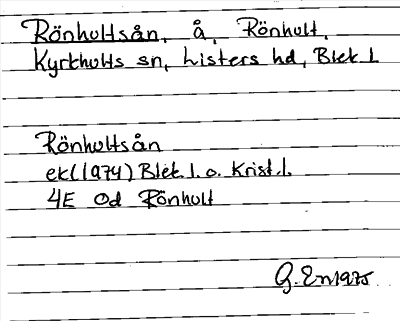 Rönhultsån, å, Rönhult,
Kyrkhults sn, Listers hd, Blek. l.
Rönhultsån
ek (1974) Blek. l. o. Krist. l.
4E Od Rönhult
G. En 1975